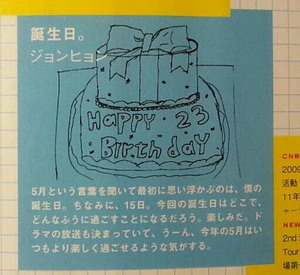 誕生日。
ジョンヒョン
HAPPY 23
Birth day
5月という言葉を聞いて最初に思い浮かぶのは、僕の
誕生日。ちなみに、15日。今回の誕生日はどこで、
どんなふうに過ごすことになるだろう。楽しみだ。ド
ラマの放送も決まっていて、うーん、今年の5月はい
つもより楽しく過ごせるような気がする。
CNB
2009
活動
11年
ャー
NEW
2nd
Tour
場第